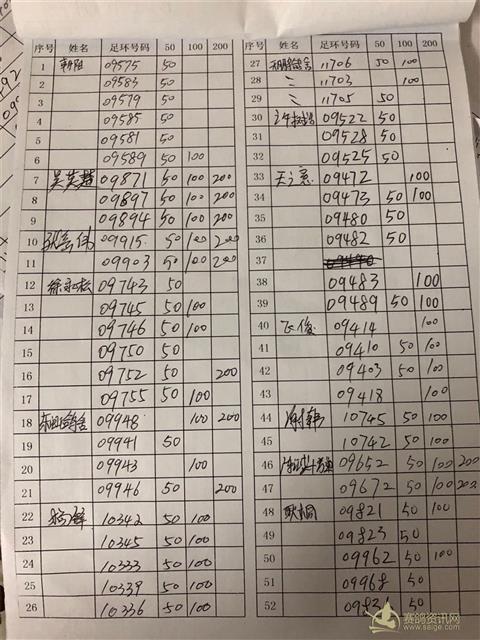 序号 姓名 足环号码 50 100 200
1 朝阳 09575 50
2 09583 50
3 09579 50
4 09585 50
5 09581 50
6 09589 50 100
7 09871 50 100 200
8 09897 50 100 200
9 09894 50 100 200
10 09915 50 100 200
11 09903 50 100 200
12 09743 50
13 09745 50 100
14 09746 50 100
15 09750 50
16 09752 50 200
17 09755 50 100
18 09948 100 200
19 09941 50
20 09943 100
21 09946 50 200
22 10342 50 100
23 10345 50 100
24 10333 50 100
25 10339 50 100
26 10336 50 100
序号 姓名 足环号码 50 100 200
27 11706 50 100
28 〃 11703 100
29 〃 11705 50
30 09522 50
31 09528 50
32 09525 50
33 09472 100
34 09473 50 100
35 09480 50
36 09482 50
37 09490
38 09483 100
39 09489 50 100
40 飞俊 09414 100
41 09410 50 100
42 09403 50 100
43 09418 100
44 10745 50 100
45 10742 50 100
46 09652 50 100 200
47 09672 50 100 200
48 耿桐 09821 50 100
49 09823 50
50 09962 50 100
51 09968 50
52 50
赛鸽资讯网
www.saige.com